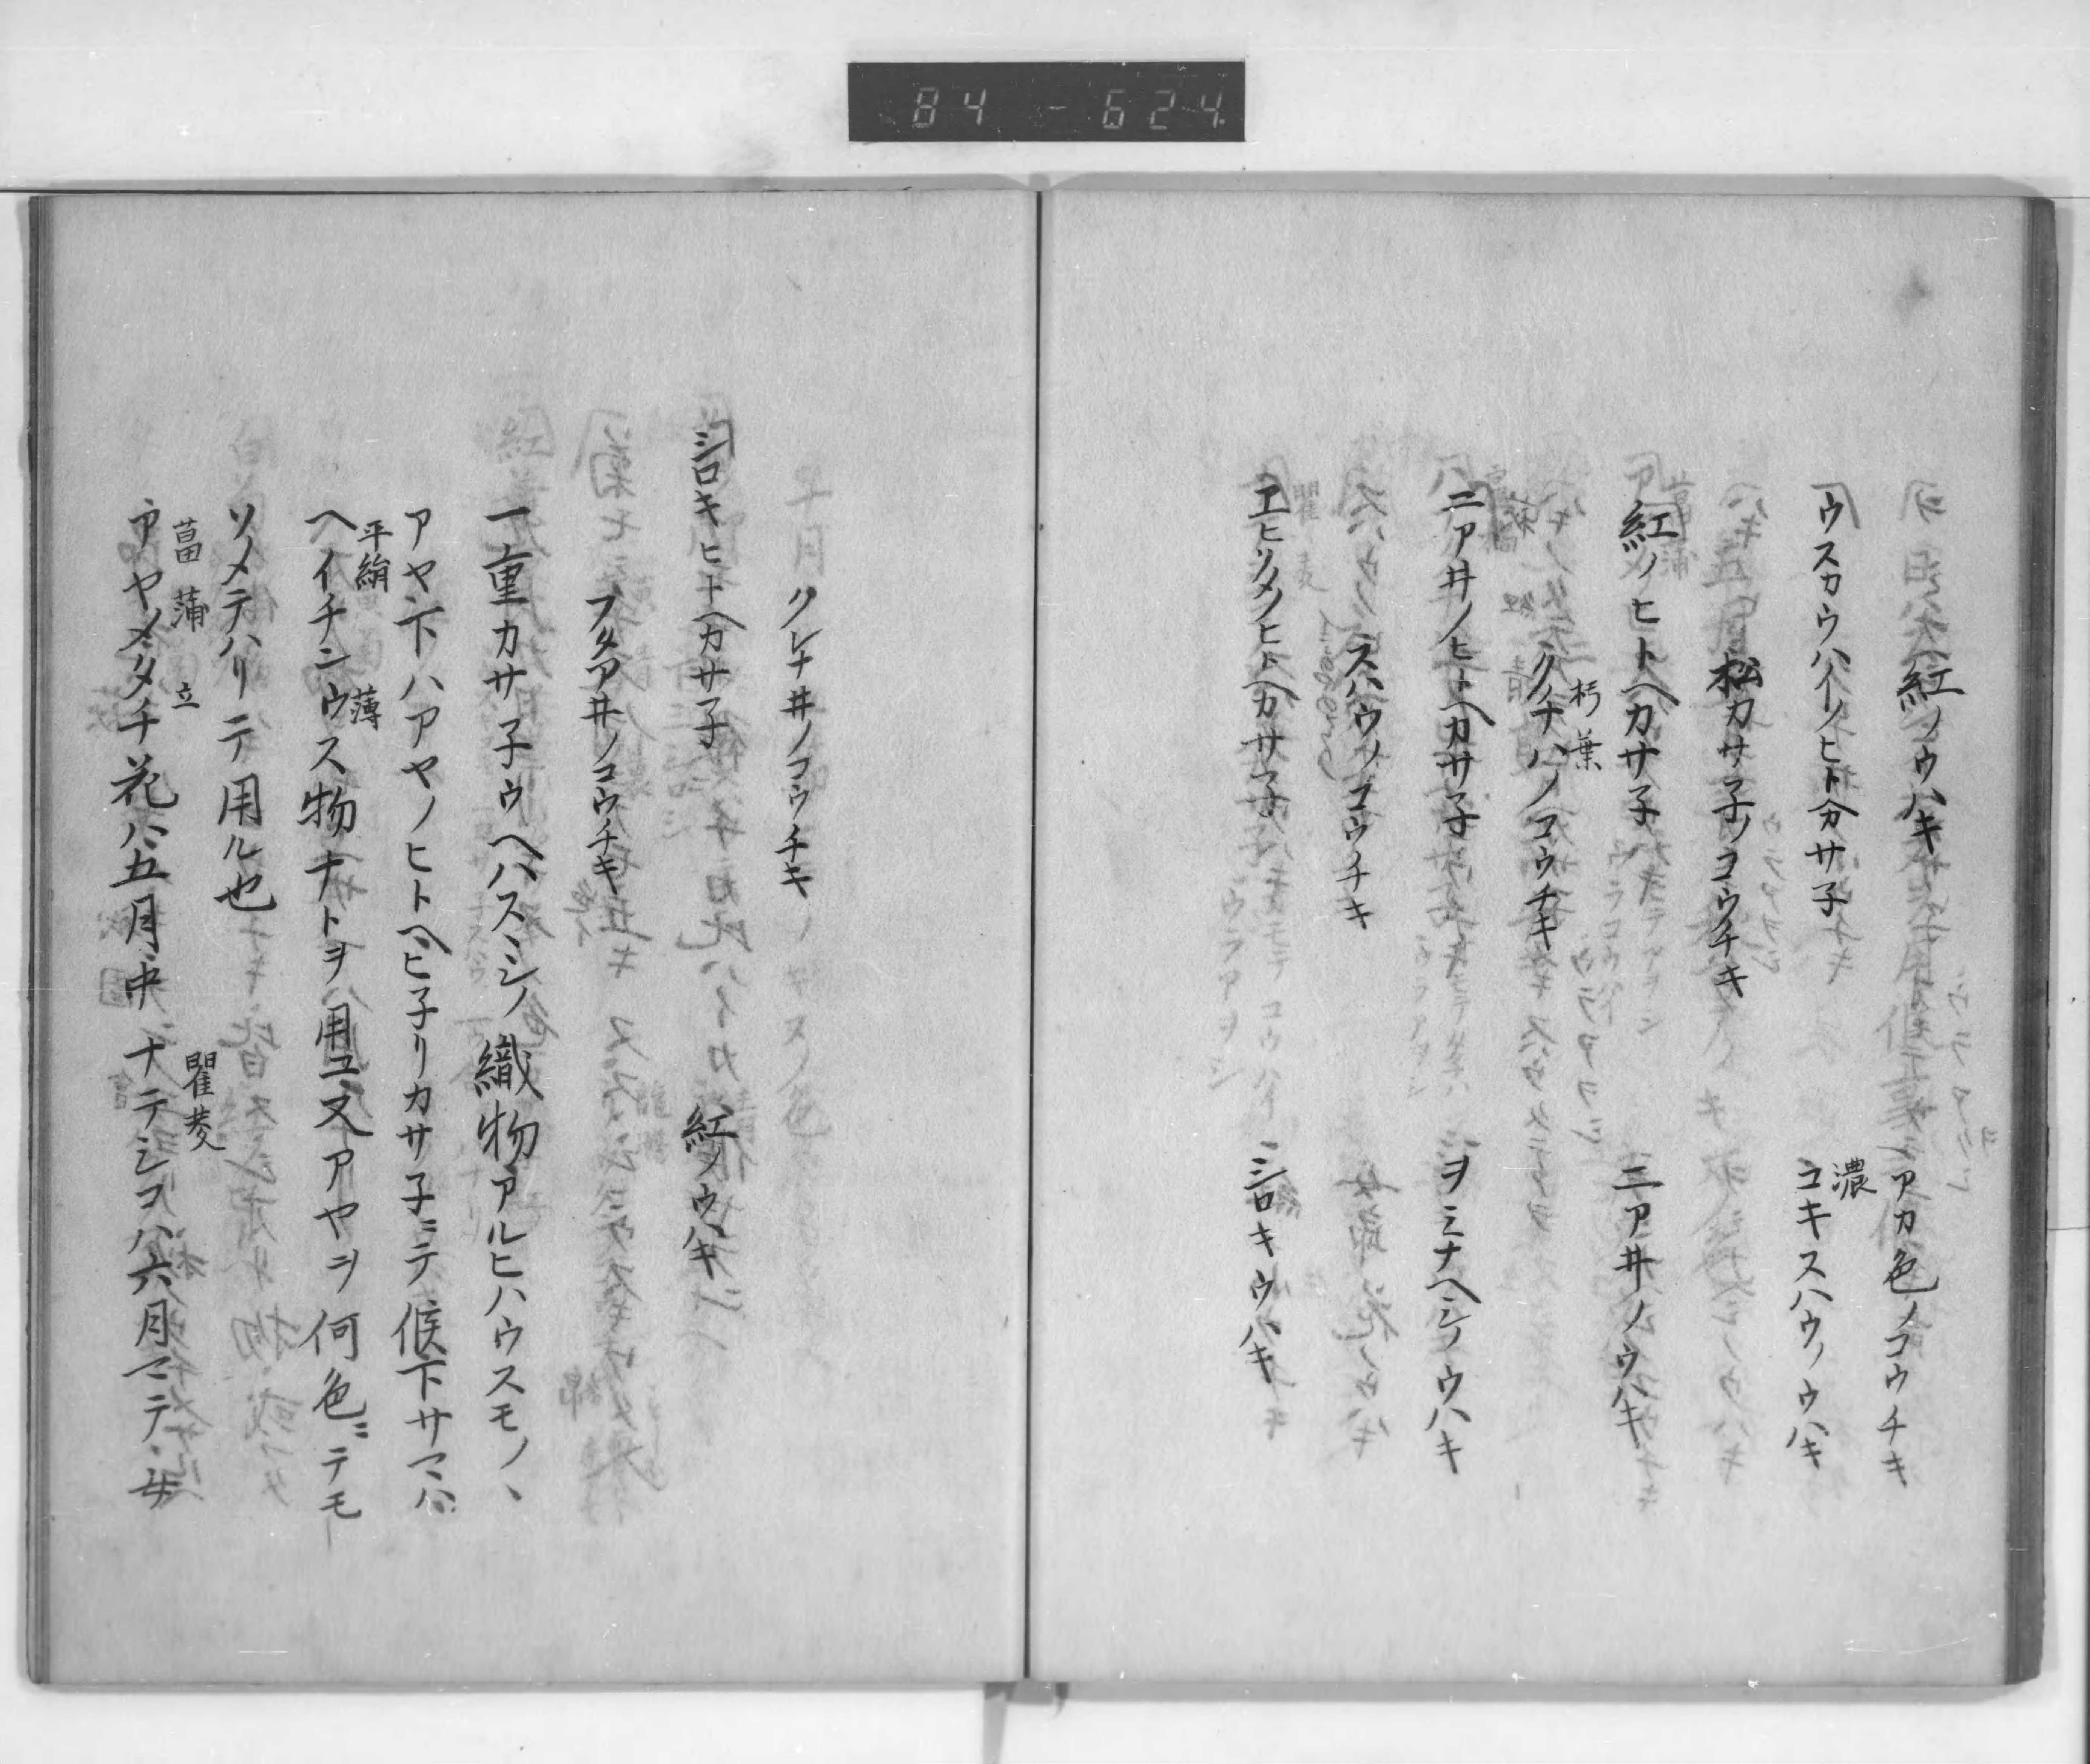 84 - 624
紅ノウハキ　アカ色ノコウチキ
ウスカウハイノヒトヘカサ子　コキスハウノウハキ
濃
松カサ子ノコウチキ
紅ノヒトヘカサ子　二アヰノウハキ
朽葉
クチハノコウチキ
二アヰノヒトヘカサ子　ヲミナヘシノウハキ
スハウノコウチキ
エヒソメノヒトヘカサ子　シロキウハキ
クレナヰノコウチキ
シロキヒトヘカサ子　紅ノウハキ
フタアヰノコウチキ
一重カサ子ウヘハスヽシノ織物アルヒハウスモノヽ
アヤ下ハアヤノヒトヘヒ子リカサ子ニテ候下サマハ
平絹　薄
ヘイチンウス物ナトヲ用ユ又アヤヲ何色ニテモ
ソメテハリテ用ル也
菖蒲　立　瞿麦
アヤメタチ花ハ五月中ナテシコハ六月マテ